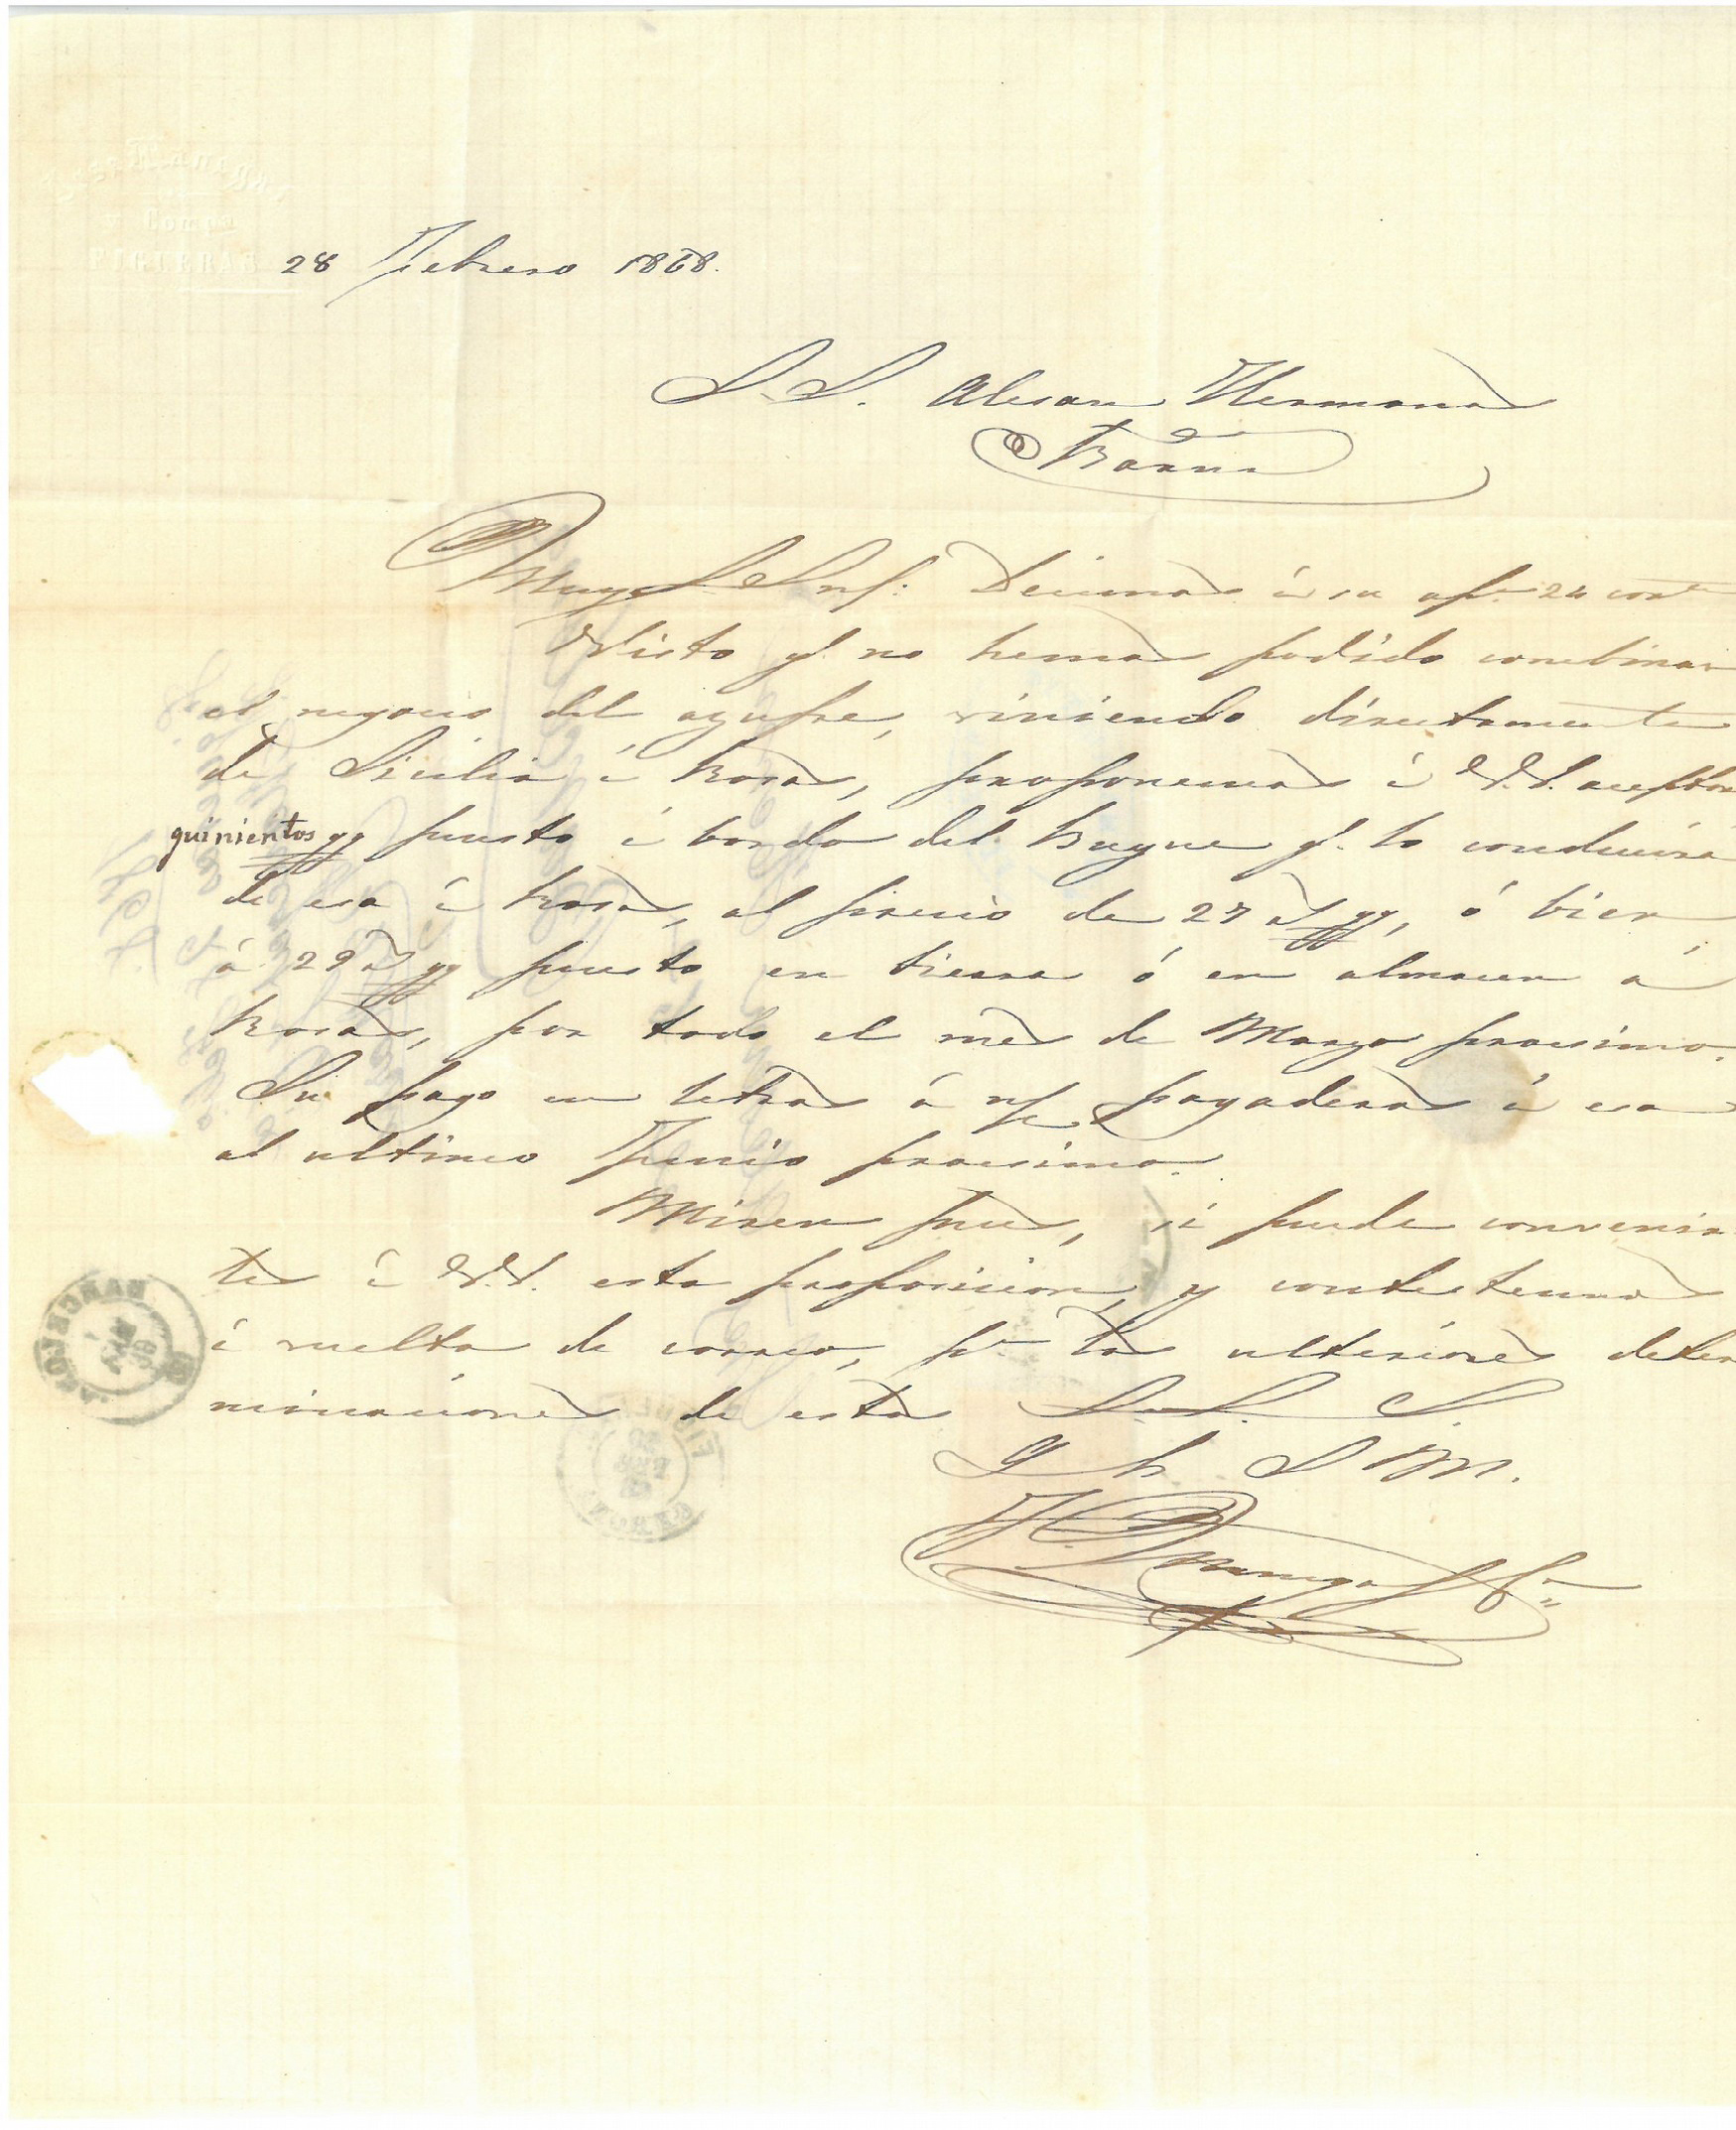 y Comp.
FIGUERAS 28 Febrero 1868.
S.S. Alesan Hermanos
Barna
Muy S. Sres: Decimos á su 24 corte
Visto q. no hemos podido combinar
el negocio del azufre, viniendo directamente
de Sicilia á Rosas, proponemos á V.V. aceptar
quinientos qq puesto á bordo del buque q. lo conducirá
de esa á Rosas, al precio de 27 qq, ó bien
á 29 qq puesto en tierra ó en almacen á
Rosas, por todo el mes de Marzo procsimo.
Su pago en letras á n/c pagaderas á esa
al ultimo Junio procsimo.
Miren pues, si puede convenir
les á V.V. esta proposicion, y contestennos
á vuelta de correo, pa las ulteriores deter
minaciones de estos S. S. S.
Q b S M.
BARCELONA
FIGUERAS
GERONA